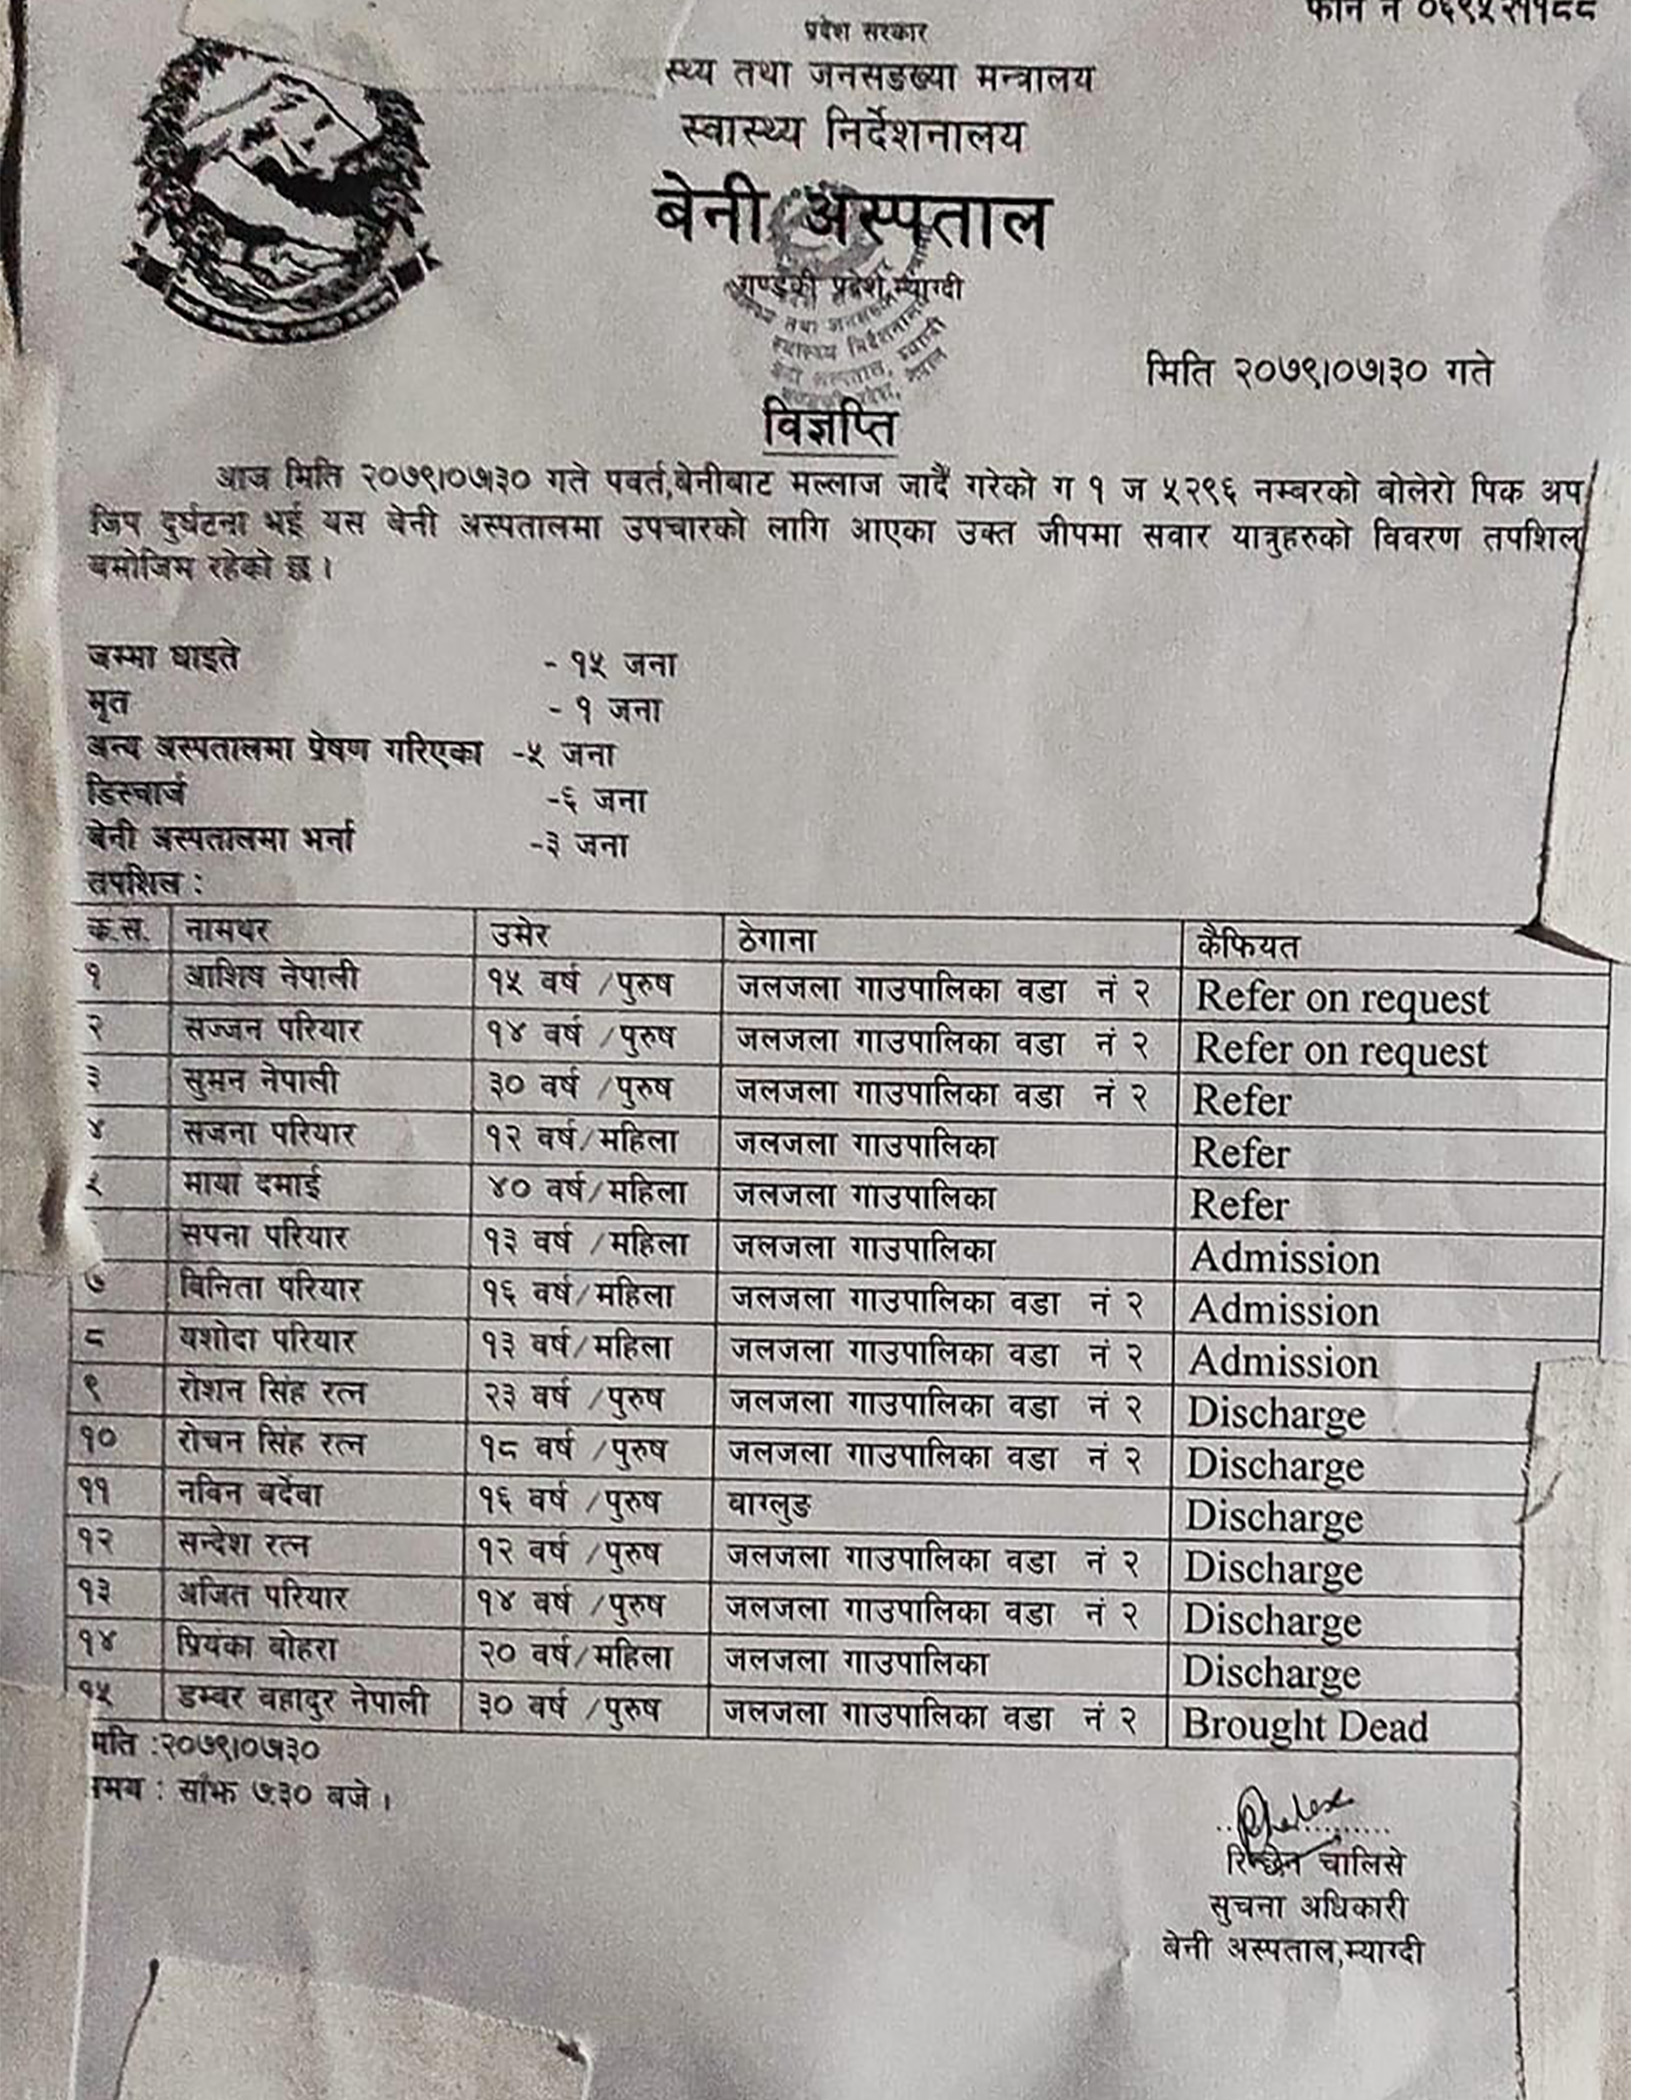 फोन नं ०६९५२११८८
प्रदेश सरकार
स्थ्य तथा जनसङख्या मन्त्रालय
स्वास्थ्य निर्देशनालय
बेनी अस्पताल
गण्डकी प्रदेश,म्याग्दी
मिति २०७९।०७।३० गते
विज्ञप्ति
आज मिति २०७९।०७।३० गते पवर्त,बेनीबाट मल्लाज जादैं गरेको ग १ ज ५२९६ नम्बरको बोलेरो पिक अप
जिप दुर्घटना भई यस बेनी अस्पतालमा उपचारको लागि आएका उक्त जीपमा सवार यात्रुहरुको विवरण तपशिल
बमोजिम रहेको छ ।
जम्मा घाइते - १५ जना
मृत - १ जना
अन्य अस्पतालमा प्रेषण गरिएका -५ जना
डिस्चार्ज -६ जना
बेनी अस्पतालमा भर्ना -३ जना
तपशिल :
क.स. नामथर उमेर ठेगाना कैफियत
१ आशिष नेपाली १५ वर्ष /पुरुष जलजला गाउपालिका वडा नं २ Refer on request
२ सज्जन परियार १४ वर्ष /पुरुष जलजला गाउपालिका वडा नं २ Refer on request
३ सुमन नेपाली ३० वर्ष /पुरुष जलजला गाउपालिका वडा नं २ Refer
४ सजना परियार १२ वर्ष/महिला जलजला गाउपालिका Refer
५ माया दमाई ४० वर्ष/महिला जलजला गाउपालिका Refer
सपना परियार १३ वर्ष /महिला जलजला गाउपालिका Admission
७ बिनिता परियार १६ वर्ष/महिला जलजला गाउपालिका वडा नं २ Admission
८ यशोदा परियार १३ वर्ष/महिला जलजला गाउपालिका वडा नं २ Admission
९ रोशन सिंह रत्न २३ वर्ष /पुरुष जलजला गाउपालिका वडा नं २ Discharge
१० रोचन सिंह रत्न १८ वर्ष /पुरुष जलजला गाउपालिका वडा नं २ Discharge
११ नविन बर्देवा १६ वर्ष /पुरुष बाग्लुङ Discharge
१२ सन्देश रत्न १२ वर्ष /पुरुष जलजला गाउपालिका वडा नं २ Discharge
१३ अजित परियार १४ वर्ष /पुरुष जलजला गाउपालिका वडा नं २ Discharge
१४ प्रियंका बोहरा २० वर्ष/महिला जलजला गाउपालिका Discharge
१५ डम्बर बहादुर नेपाली ३० वर्ष /पुरुष जलजला गाउपालिका वडा नं २ Brought Dead
मति :२०७९।०७।३०
मय : साँझ ७:३० बजे ।
रिन्छेन चालिसे
सुचना अधिकारी
बेनी अस्पताल,म्याग्दी